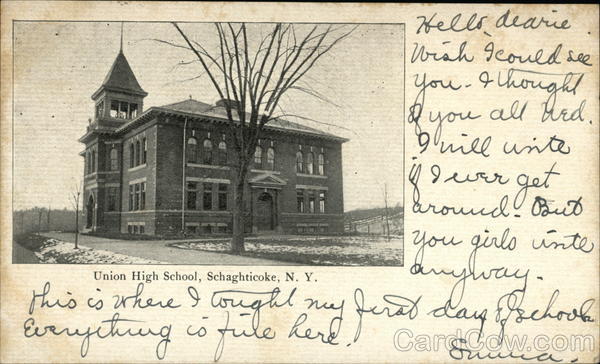 Union High School, Schaghticoke, N. Y.
Hello, dearie
Wish I could see
you - I thought
of you all Wed.
I will write
if I ever get
around. But
you girls write
anyway.
This is where I tought my first day of school
Everything is fine here.
Emma.
CardCow.com